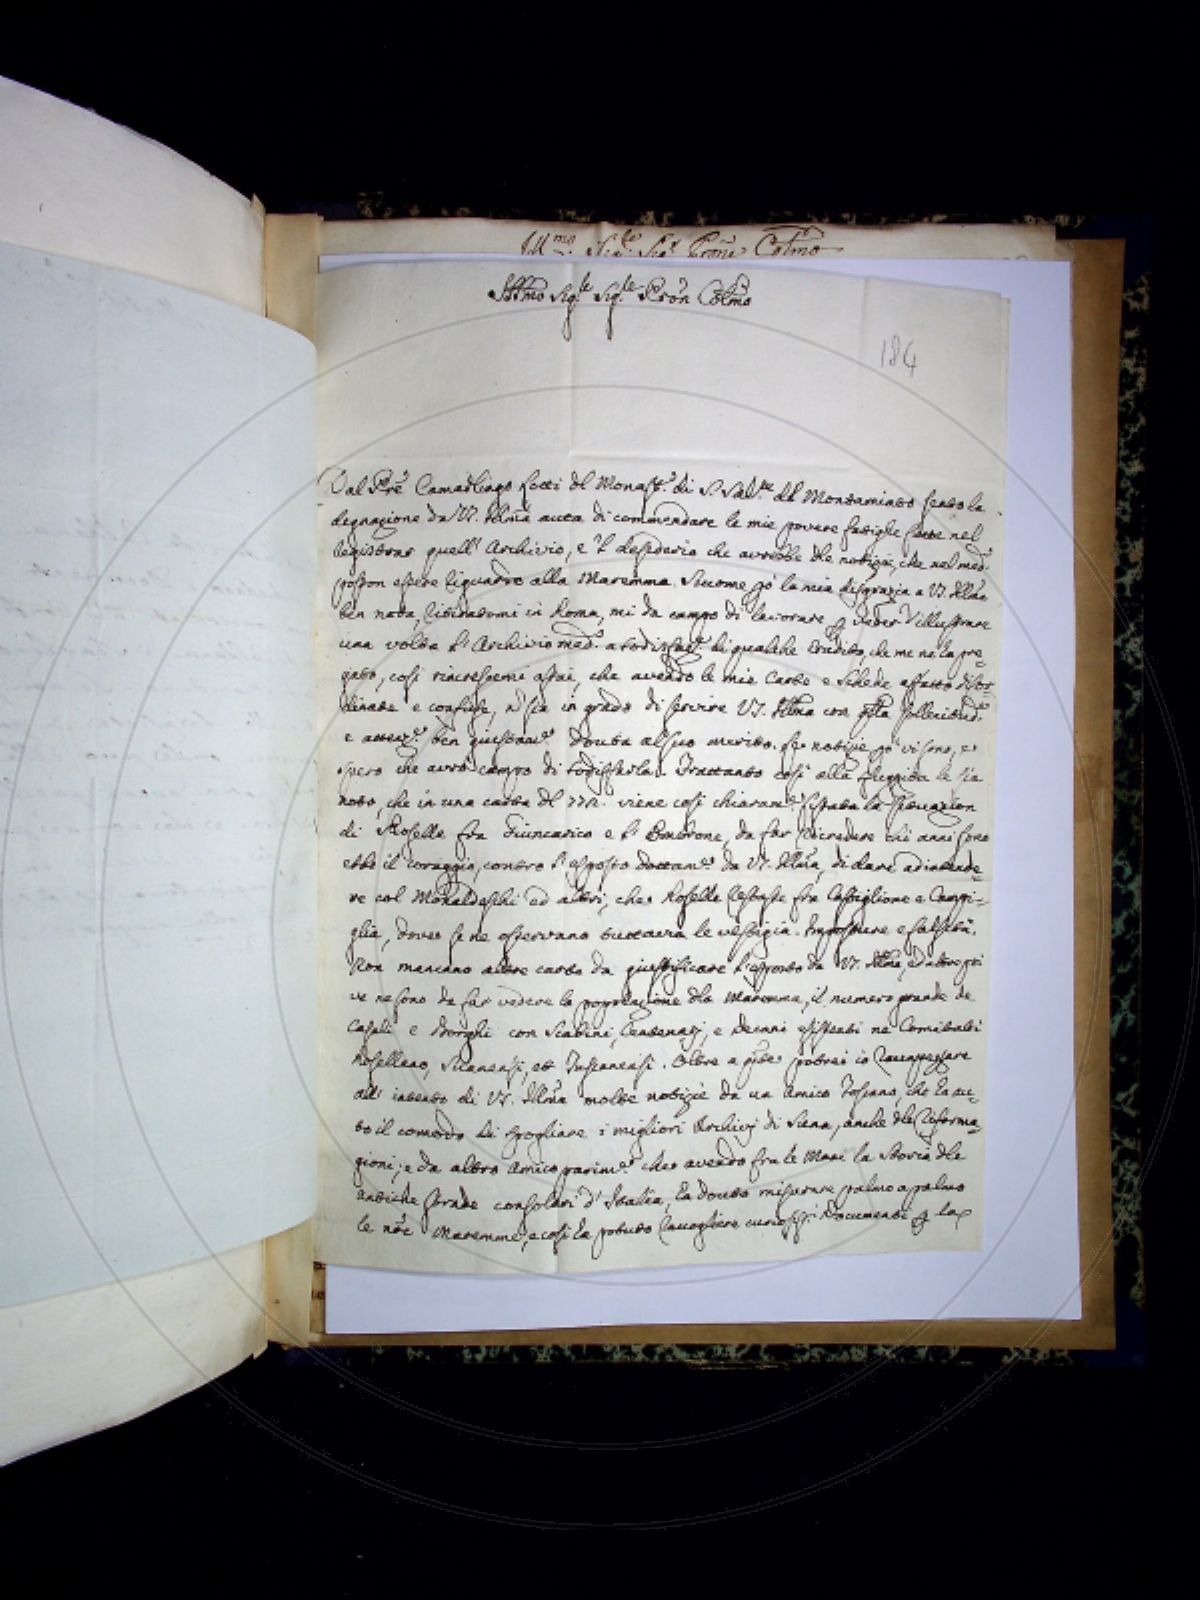 Ill.mo Sig.re Sig.r Prone Colmo
Illmo Sig.re Sig.re Pron Colmo
184
Dal Pre Camarlingo Fotti del Monast.o di S. Salv.re del Montamiato sento la
degnazione da VS. Illma auta di commendare le mie povere fatighe fatte nel
registrar quell' Archivio, e 'l desiderio che avrebbe dle notizie, che nel med.o
posson essere riguardo alla Maremma. Siccome po' la mia disgrazia a VS. Illma
ben nota, in Roma, mi da campo di lavorare p veder d'illustrare
una volta l'Archivio med.o a di qualche erudito, che me ne ha pre-
gato, così rincrescemi assai, che avendo le mie Carte e Schede affatto disor-
dinate e confuse, n sia in grado di servire VS. Illma con qsta sollecitud.e
e attenz.e ben giustam.e douta al suo merito. Le notizie po' vi sono, e
spero che avrò campo di sodisfarla. Trattanto così alla sfuggita le sia
noto, che in una carta dl 772. viene così chiaram.e la situazion
di Roselle fra Giuncarico e l'Ombrone, da far ricredere chi anni sono
ebbe il coraggio, contro l'esposto dottam.e da VS. Illma, di dare ad intende-
re col Monaldeschi ed altri, che Roselle restasse fra Castiglione e Campi-
glia, dove se ne osservano tuttavia le vestigia. Imposture e falsità.
Non mancano altre carte da giustificare l'esposto da VS. Illma, ed altre poi
ve ne sono da far vedere la popolazione dla Maremma, il numero grande de
Casali e Borghi con Scabini, Centenarj, e Decani esistenti ne Comitati
Rosellano, Suanensi, et Tuscanensi. Oltre a qste potrei io
all' intento di VS. Illma molte notizie da un Amico Toscano, che ha au-
to il comodo di spogliare i migliori Archivj di Siena, anche dle Riforma-
gioni; e da altro Amico parim.e che avendo fra le Mani la Storia dle
antiche strade consolari d'Italia, ha douto misurare palmo a palmo
le nre Maremme, e così ha potuto raccogliere curiosiss.i Documenti p la